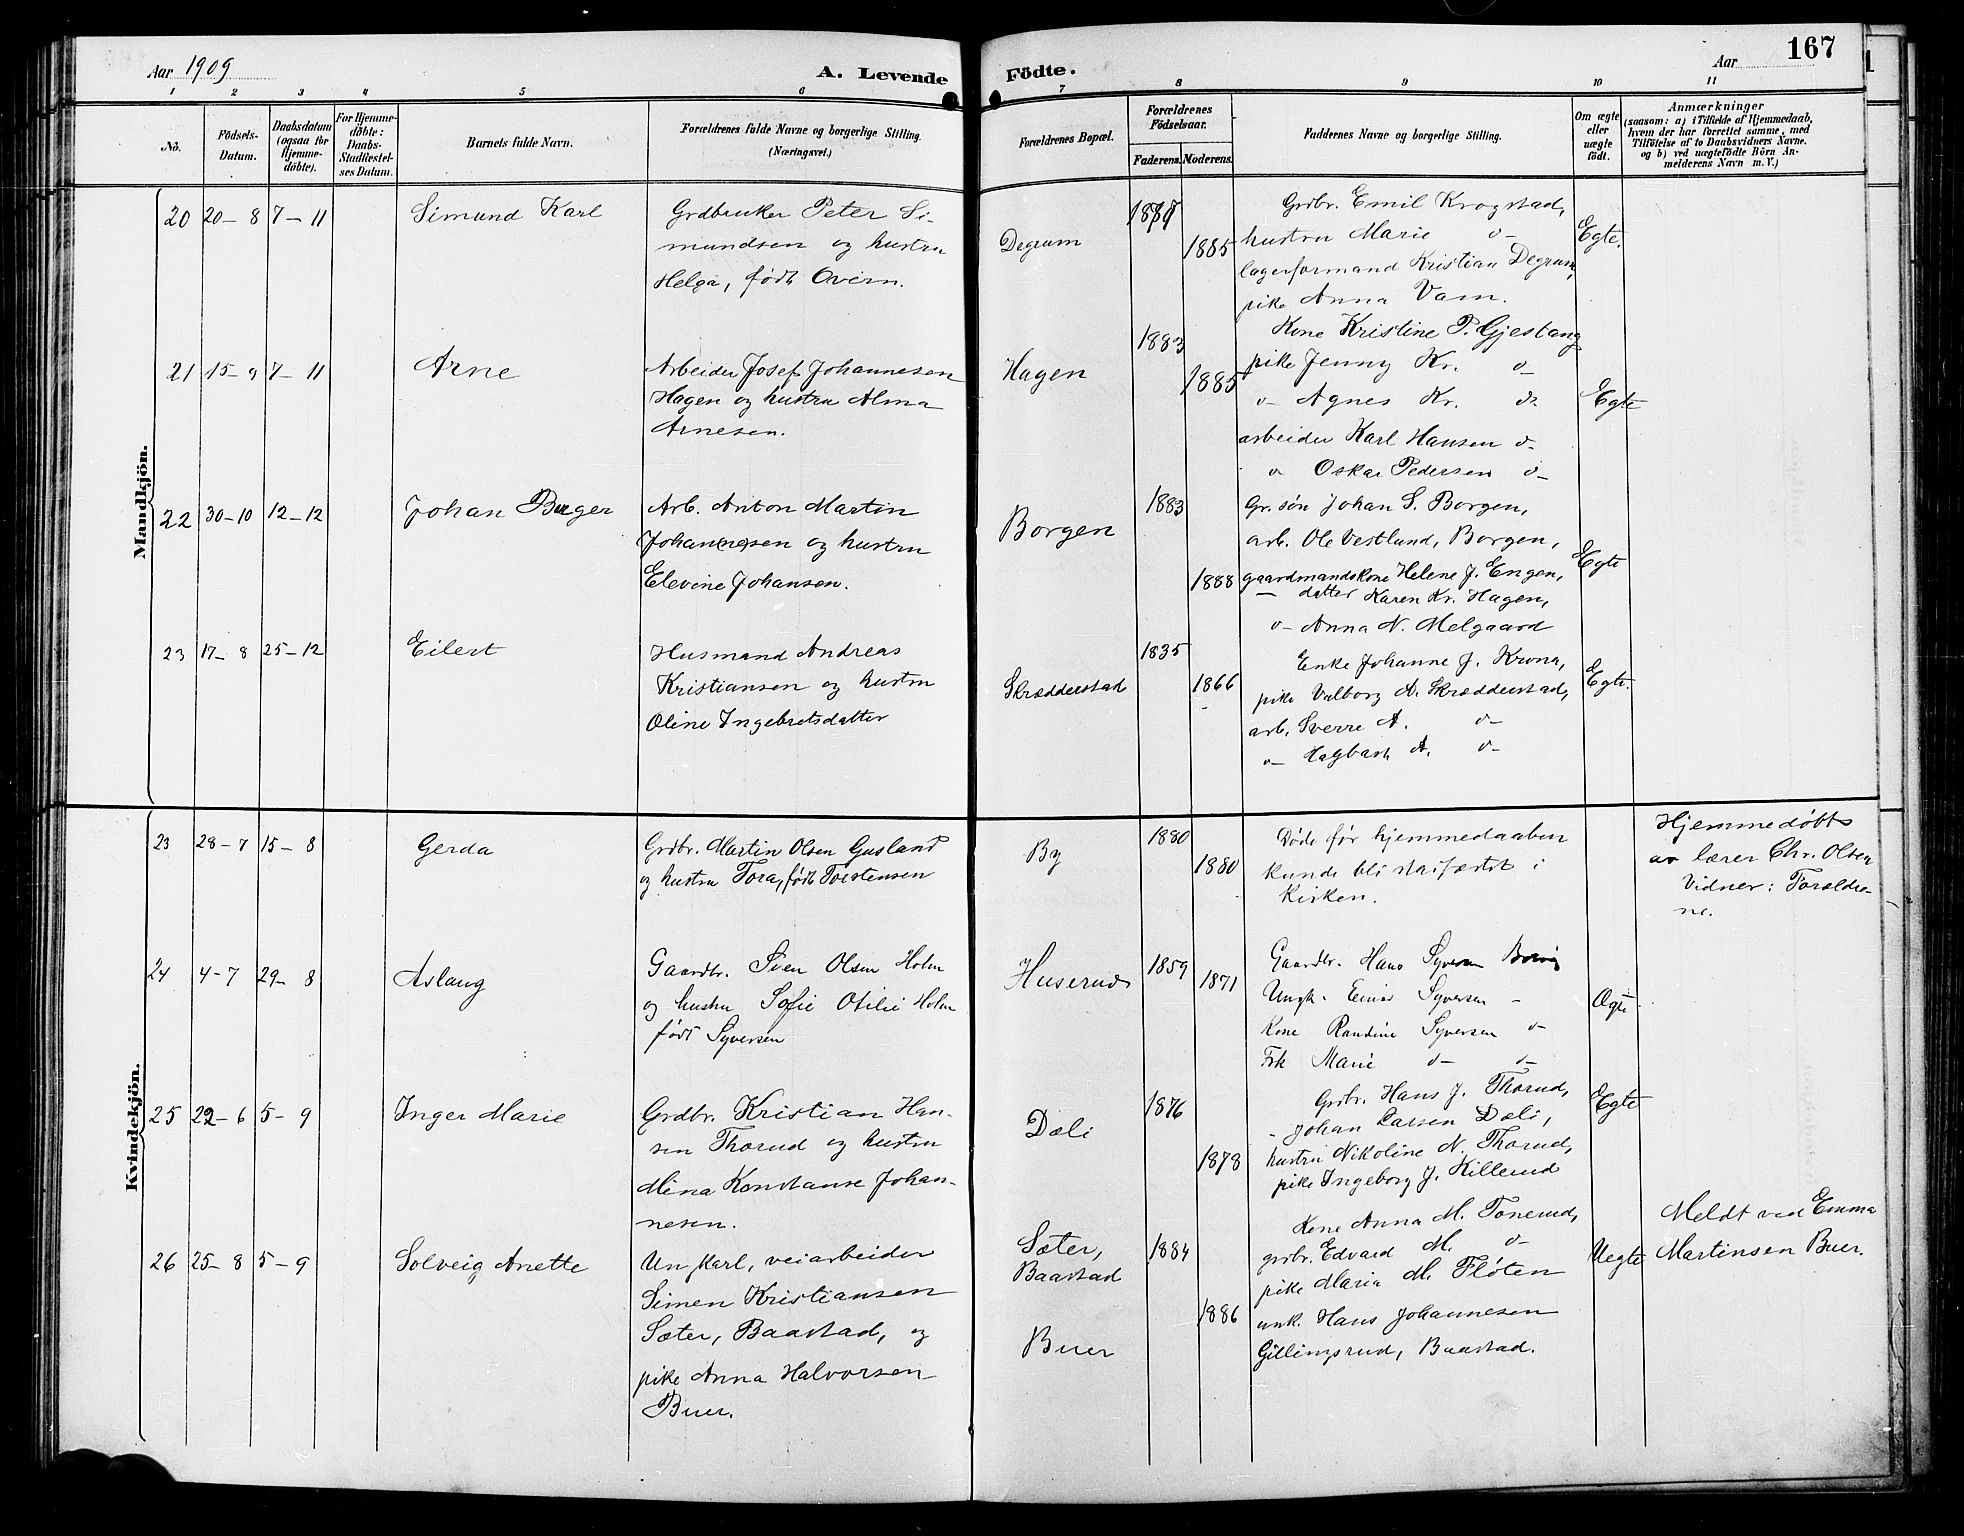 Aar 1909
A. Levende
Födte.
Aar
167
1 2 3 4 5 6 7 8 9 10 11
No.
Födsels-Datum.
Daabsdatum (ogsaa for Hjemmedöbte).
For Hjemmedöbte: Daabs-Stadfæstelses Datum.
Barnets fulde Navn.
Forældrenes fulde Navne og borgerlige Stilling.
(Næringsvei.)
Forældrenes Bopæl.
Forældrenes Födselsaar.
Faderens. Moderens.
Faddernes Navne og borgerlige Stilling.
Om ægte eller uægte födt.
Anmærkninger
(saasom: a) i Tilfælde af Hjemmedaab,
hvem der har forrettet samme, med
Tilföielse af to Daabsvidners Navne.
og b) ved uægtefödte Börn An-
melderens Navn m. V.)
Mandkjön.
20 20-8 7-11 Simund Karl
Grdbruker Peter Si-
mundsen og hustru
Helga, født Overn.
Degrum
1885
Grdbr. Emil Krogstad,
hustru Marie o-
lagerformand Kristian Degrum,
pike Anna Vam.
Egte.
21 15-9 7-11 Arne
Arbeider Josef Johannesen
Hagen og hustru Alma
Arnesen.
Hagen
1883
1885
Kone Kristine P. Gjestang
pike Jenny Kr. o-
o- Agnes Kr. o-
arbeider Karl Hansen o-
o Oskar Pedersen o-
Egte
22 30-10 12-12 Johan Birger
Arb. Anton Martin
Johan(ne)sen og hustru
Elevine Johansen.
Borgen
1883
1888
Gr. søn Johan S. Borgen,
arb. Ole Vestlund, Borgen,
gaardmandskone Helene J. Engen,
— datter Karen Kr. Hagen,
o- Anna N. Melgaard
Egte
23 17-8 25-12 Eilert
Husmand Andreas
Kristiansen og hustru
Oline Ingebretsdatter
Skrædderstad
1835
1866
Enke Johanne J. Krona,
pike Valborg A. Skrædderstad,
arb. Sverre A. o-
o- Hagbart A. o-
Egte.
Kvindekjön.
23 28-7 15-8 Gerda
Grdbr. Martin Olsen Gusland
og hustru Tora, født Torstensen
By
1880
1880
Døde før hjemmedaaben
kunde bli stadfæstet i
Kirken.
Hjemmedøbt
av lærer Chr. Olsen
Vidner: Forældre-
ne.
24 4-7 29-8 Aslaug
Gaardbr. Sven Olsen Holm
og hustru Sofie Otilie Holm
født Syversen
Huserud
1859
1871
Gaardbr. Hans Syversen
Ungk. Einar Syversen -
Kone Randine Syversen o-
Frk Marie o- o-
Ægte
25 22-6 5-9 Inger Marie
Grdbr. Kristian Han-
sen Thorud og hustru
Mina Konstanse Johan-
nesen.
Dæli
1876
1878
Grdbr. Hans J. Thorud,
- Johan Larsen Dæli,
hustru Nikoline N. Thorud,
pike Ingeborg J. Killerud
Egte
26 25-8 5-9 Solveig Anette
Ungkarl, veiarbeider
Simen Kristiansen
Sæter, Baastad, og
pike Anna Halvorsen
Buer.
Sæter,
Baastad
Buer
1884
1886
Kone Anna M. Tonerud,
grdbr. Edvard M. o-
pike Maria M. Fløten
unk. Hans Johannesen
Gillingsrud, Baastad.
Uegte
Meldt ved Emma
Martinsen Buer.